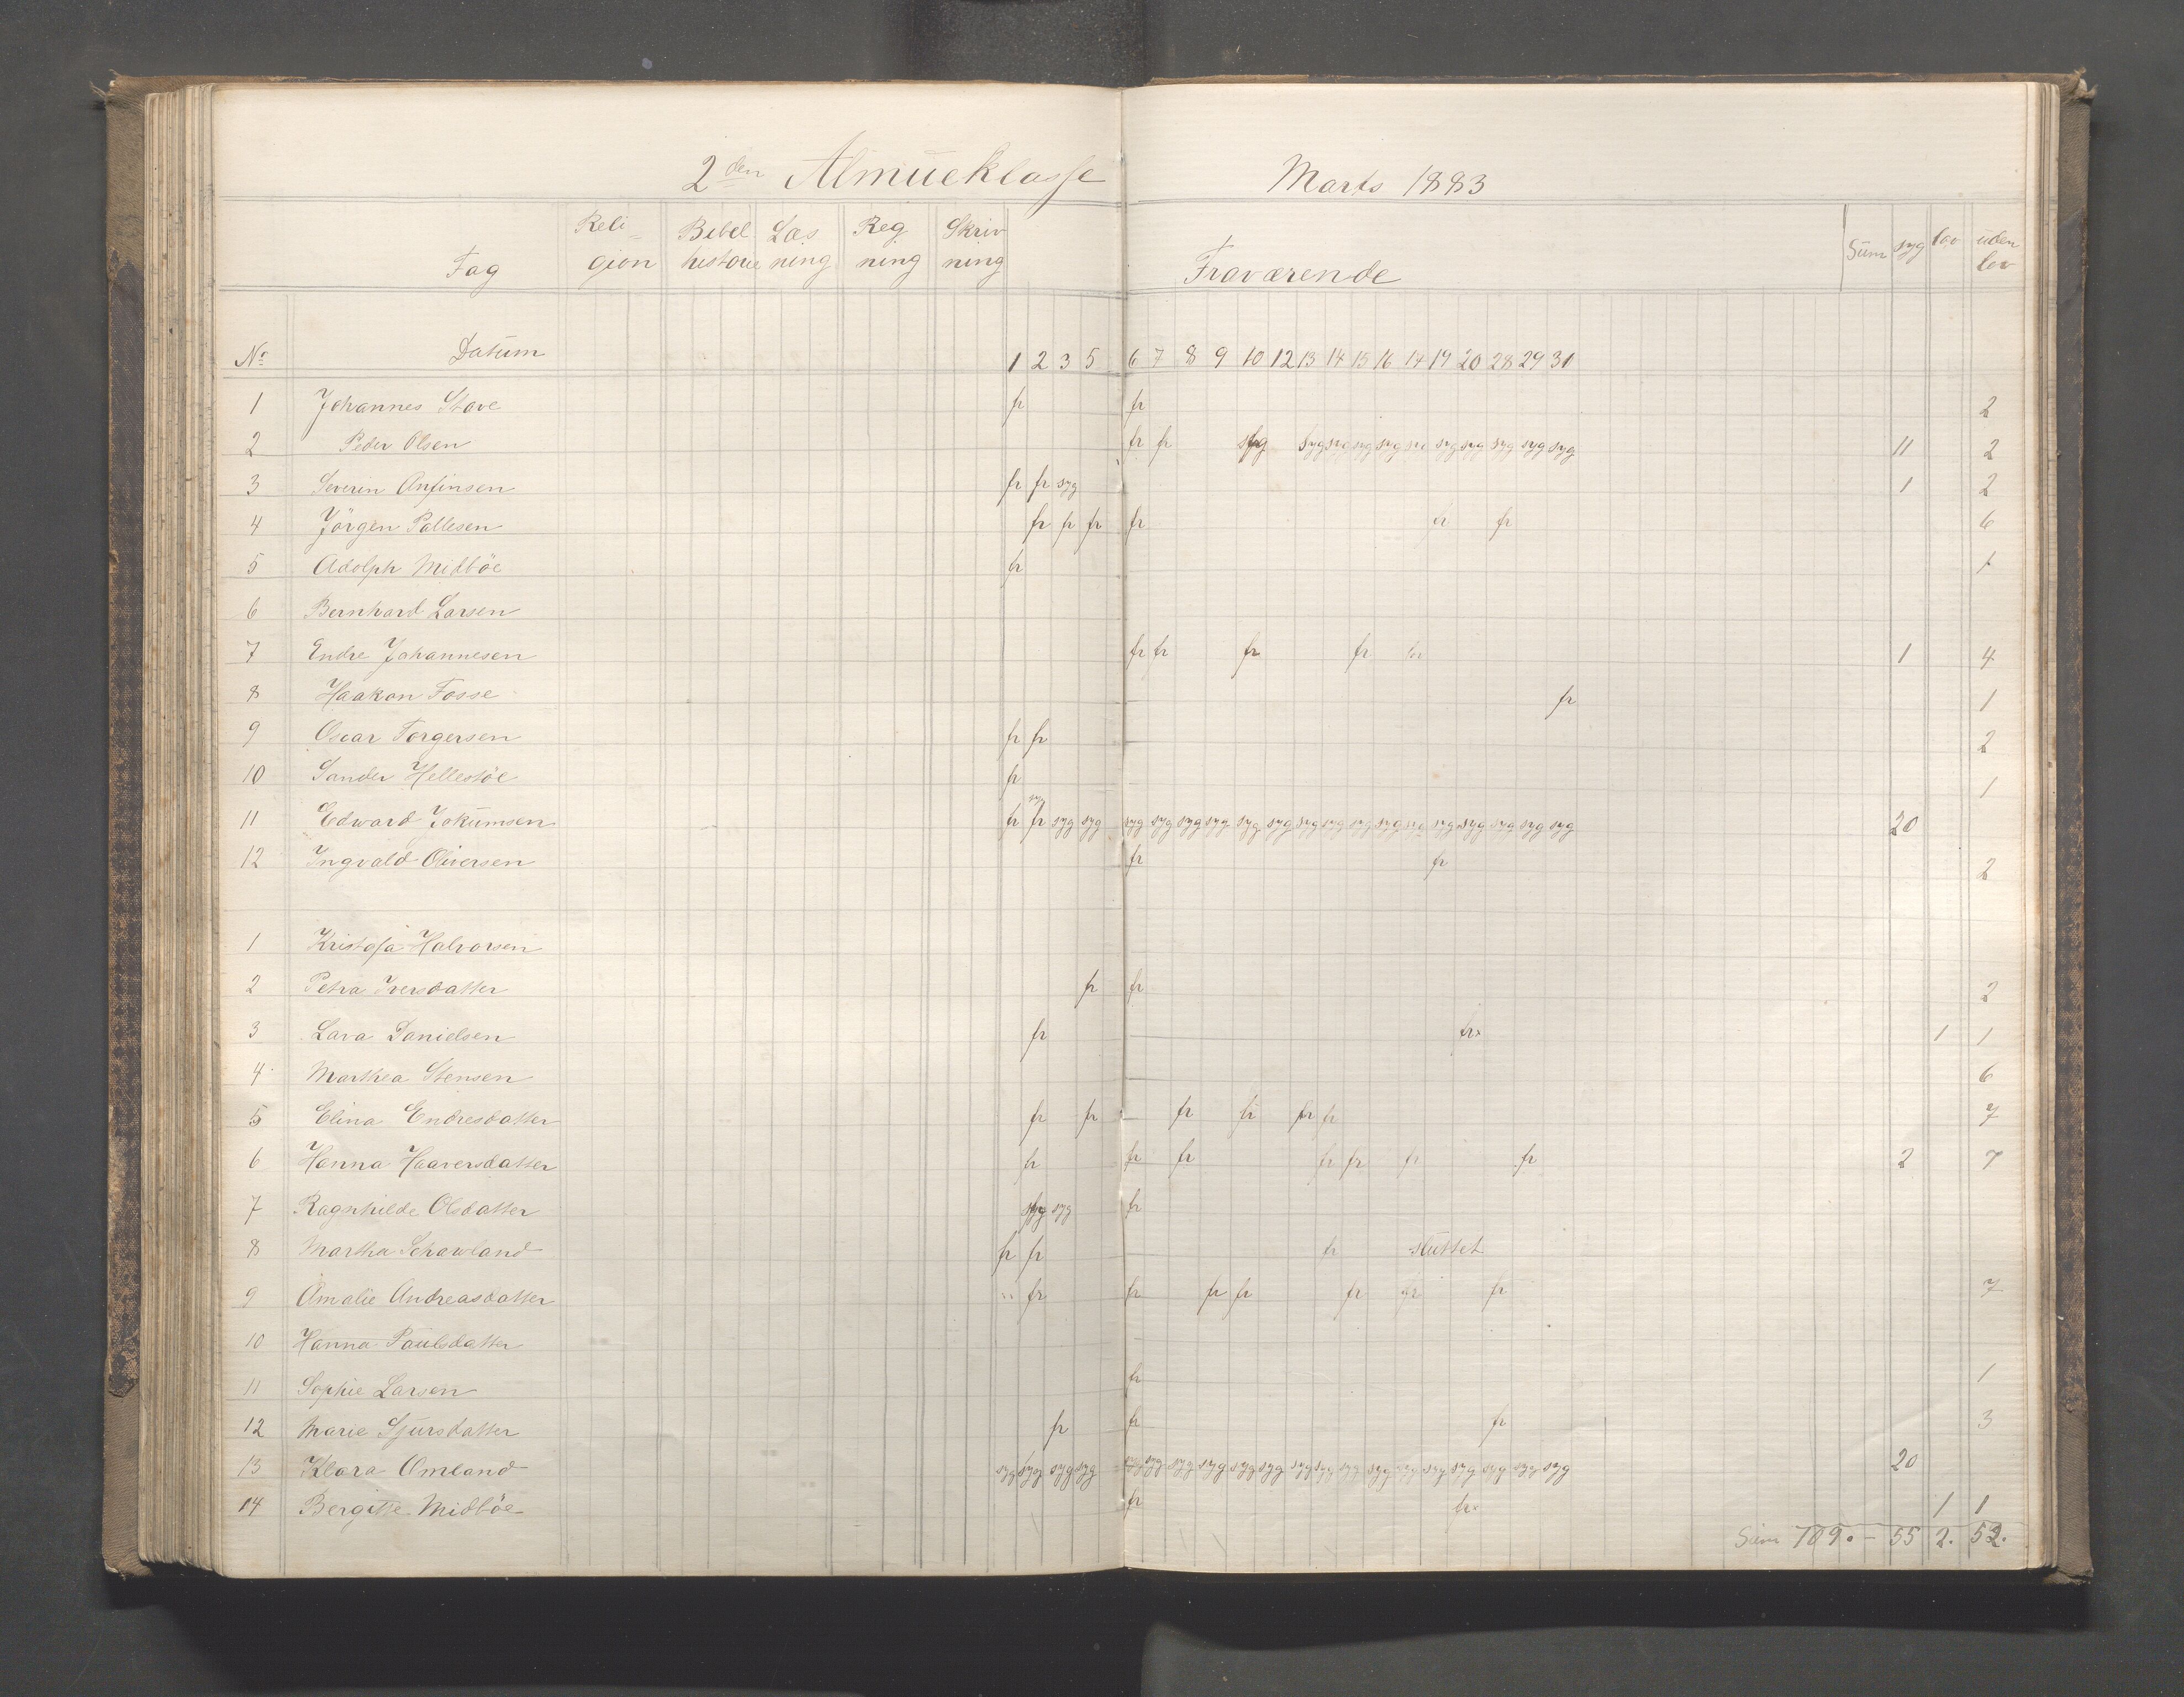 2den Almueklasse Marts 1883
Fag Religion Bibelhistorie Læsning Regning Skrivning Fraværende Sum syg lov uden lov
No Datum 1 2 3 5 6 7 8 9 10 12 13 14 15 16 17 19 20 28 29 31
1 Johannes Stave fr fr 2
2 Peder Olsen fr fr syg syg syg syg syg syg syg syg syg syg syg 11 2
3 Severin Anfinsen fr fr syg 1 2
4 Jörgen Pallesen fr fr fr fr fr fr 6
5 Adolph Midböe fr 1
6 Bernhard Larsen
7 Endre Johannesen fr fr fr fr fr 1 4
8 Haakon Fosse fr 1
9 Oscar Torgersen fr fr 2
10 Sander Hellestöe fr 1
11 Edward Jokumsen fr fr syg syg syg syg syg syg syg syg syg syg syg syg syg syg syg syg syg syg syg 20
12 Ingvald Olversen fr fr 2
1 Halvorsen
2 Petra Iversdatter fr fr 2
3 Lava Danielsen fr fr× 1 1
4 Marthea Stensen 6
5 Elina Endresdatter fr fr fr fr fr fr 7
6 Hanna Haaversdatter fr fr fr fr fr fr fr 2 7
7 Ragnhilde Olsdatter syg syg fr
8 Martha Schawland fr fr fr sluttet
9 Amalie Andreasdatter " fr fr fr fr fr fr fr 7
10 Hanna Paulsdatter
11 Sophie Larsen fr 1
12 Marie Sjursdatter fr fr fr 3
13 Klara Omland syg syg syg syg syg syg syg syg syg syg syg syg syg syg syg syg syg syg syg syg 20
14 Bergitte Midböe fr fr× 1 1
Sum 109. – 55 2. 52.